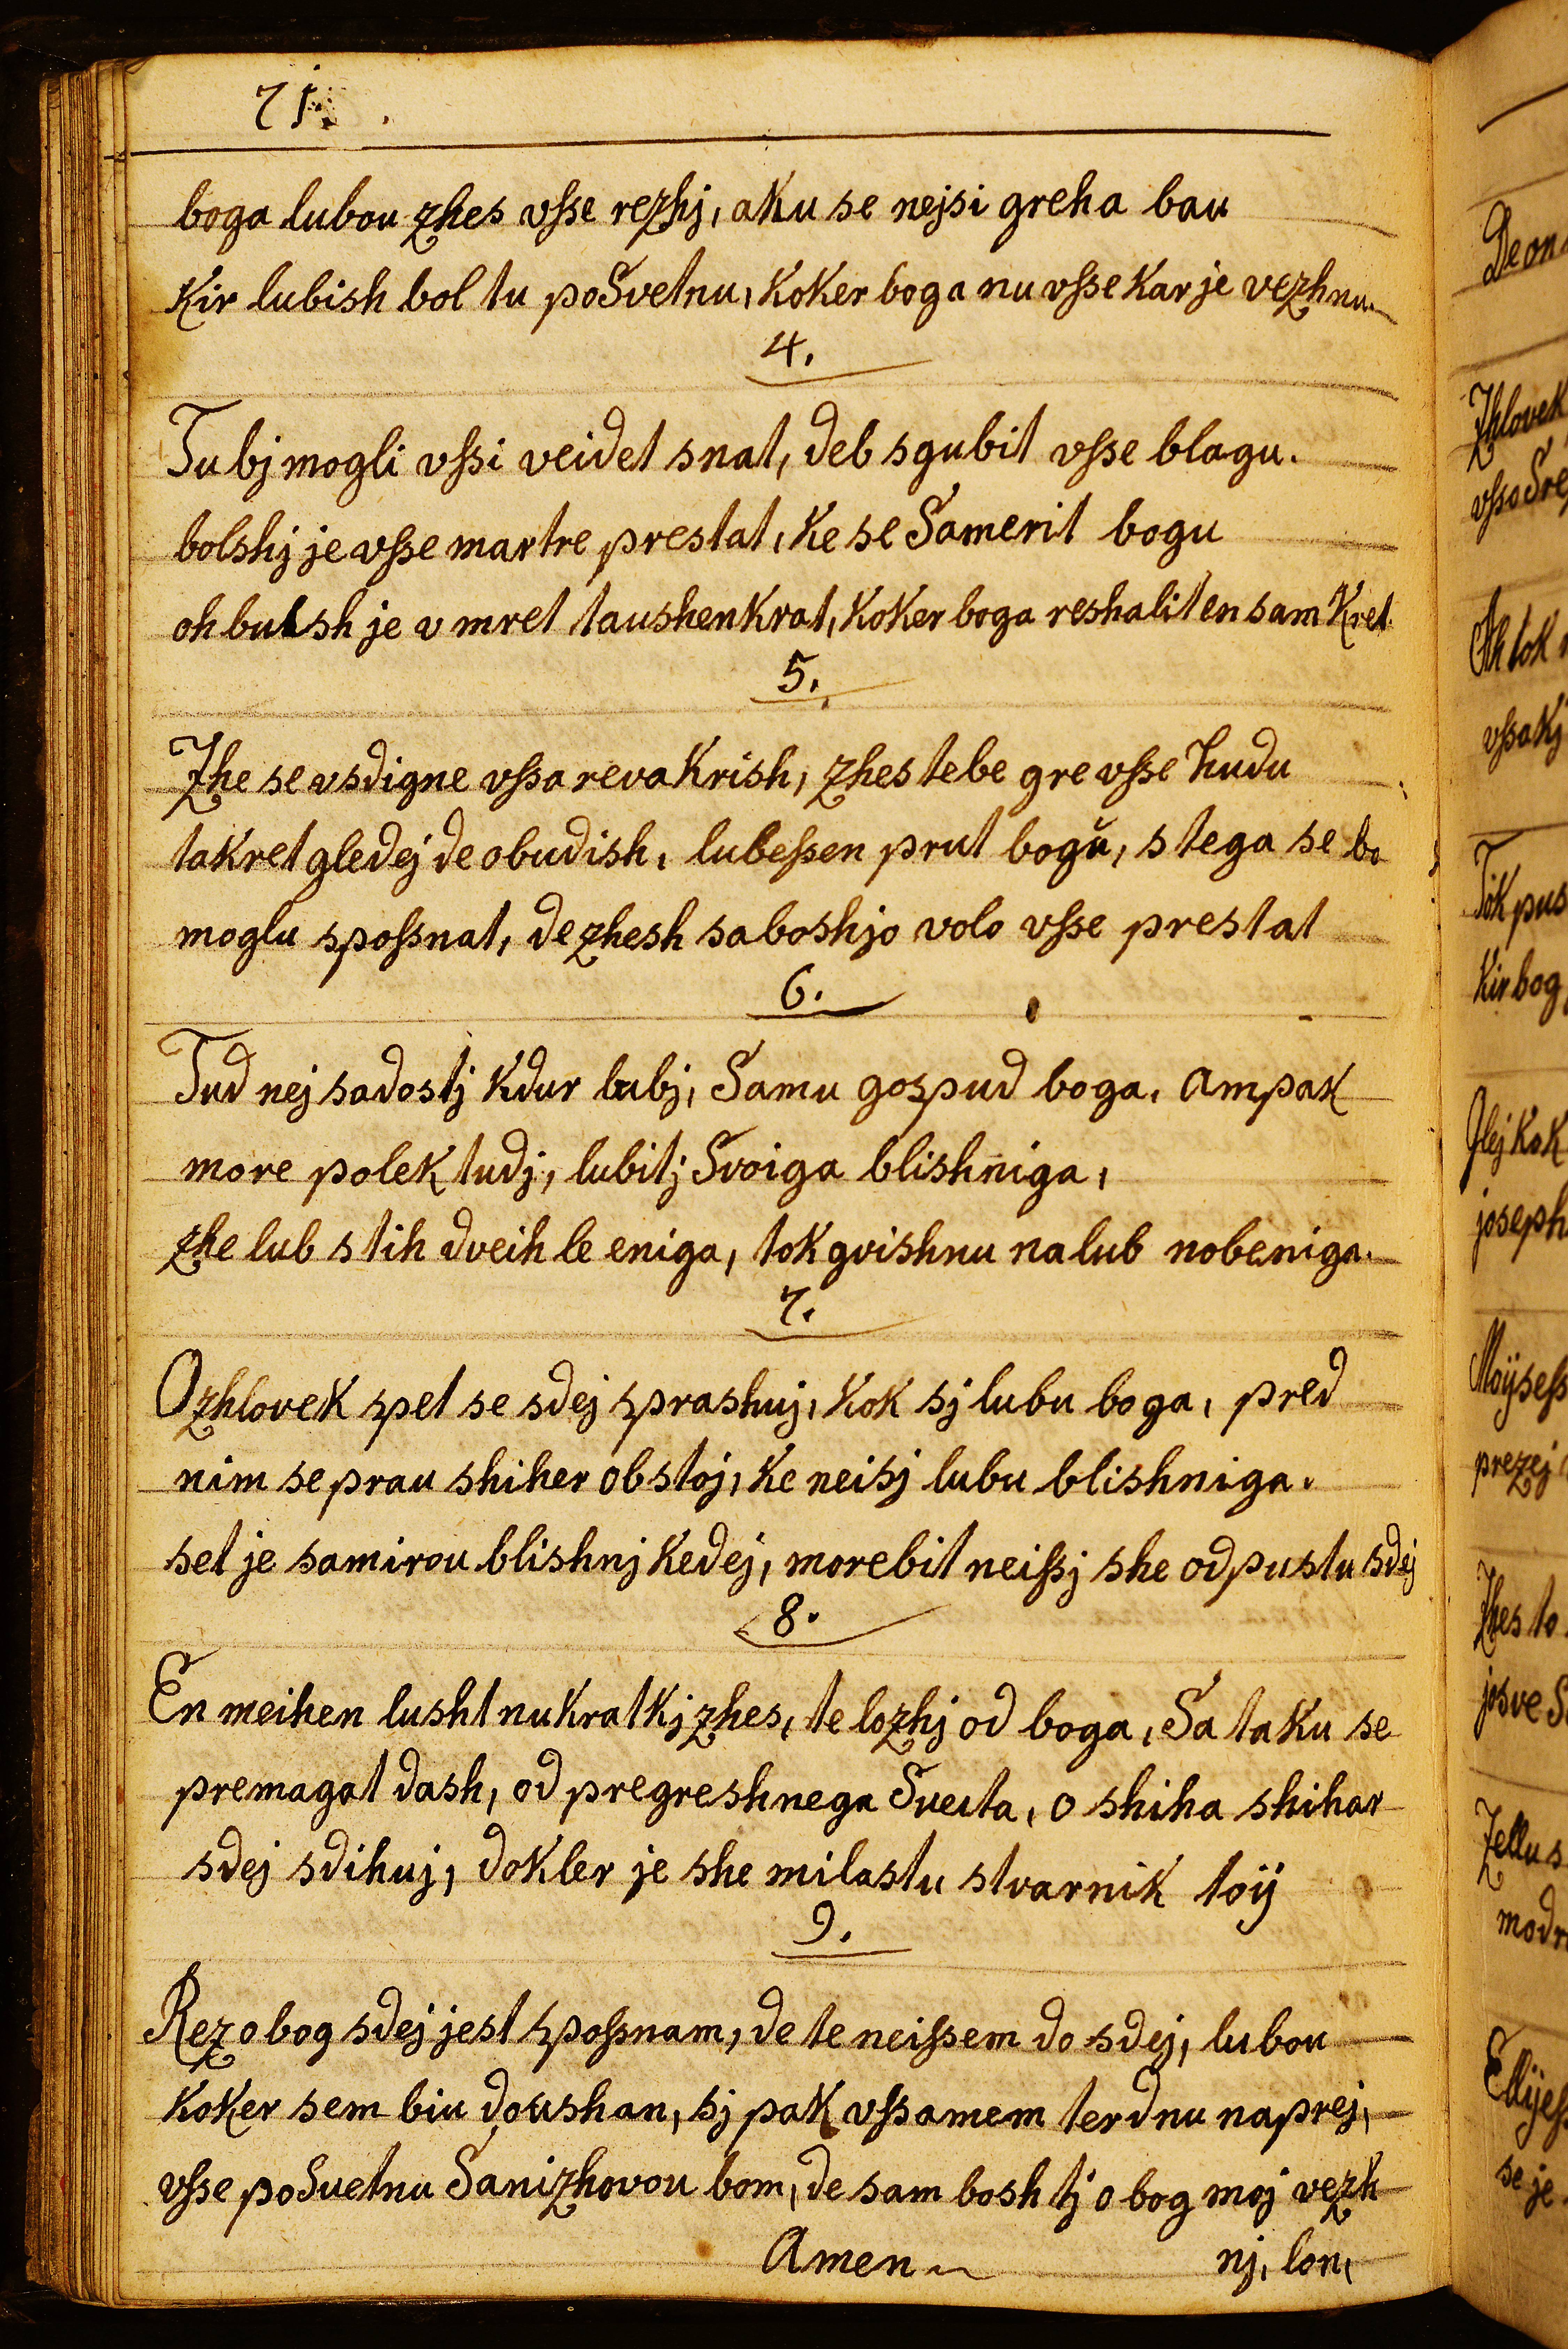 71.
boga lubou zhes vſse rezhj, aku se nejsi greha bau
Kir lubish bol tu poSvetnu, Koker boga nu vſse Kar je vezhnu.
4.
Tu bj mogli vſsi veidet snat, deb sgubit vſse blagu.
bolshj je vſse martre prestat, Ke se Samerit bogu
oh bulsh je v mret taushenkrat, Koker boga reshalit en sam Kret.
5.
Zhe se vsdigne vſsa reva Krish, zhes tebe gre vſse hudu
takret gledej de obudish, lubeſsen prut bogŭ, s tega se bo
moglu spoſsnat, de zhesh sa boshjo volo vſse prestat
6.
Tud nej sadostj Kdur lubj, Samu gospud boga, ampak
more polek tudj, lubitj Svoiga blishniga,
zhe lub s tih dveih le eniga, tok gvishnu na lub nobeniga.
7.
O zhlovek spet se sdej sprashuj, Kok sj lubu boga, pred
nim se prau shiher obstoj, Ke neisj lubu blishniga.
set je samirou blishnj Kedej, morebit neiſsj she odpustu sdej
8.
En meihen lusht nu Kratkj zhes, te lozhj od boga, Sa taku se
premagat dash, od pregreshnega Sveita, o shiha shihar
sdej sdihuj, dokler je she milastu stvarnik toÿ
9.
Rez o bog sdej jest spoſsnam, de te neiſsem do sdej, lubou
Koker sem biu doushan, sj pak vſsamem terdnu naprej,
vſse poSuetnu Sanizhovou bom, de sam bosh tj o bog moj vezh
Amen nj, lon,
De on
Zhlovek
Oh tok
vſsakj
Tok pus
Kir bog
Glej Kok
joseph
Moÿseſs
prezej
Zhes to
josve
Zellu s
modr
Ellijeſs
se je